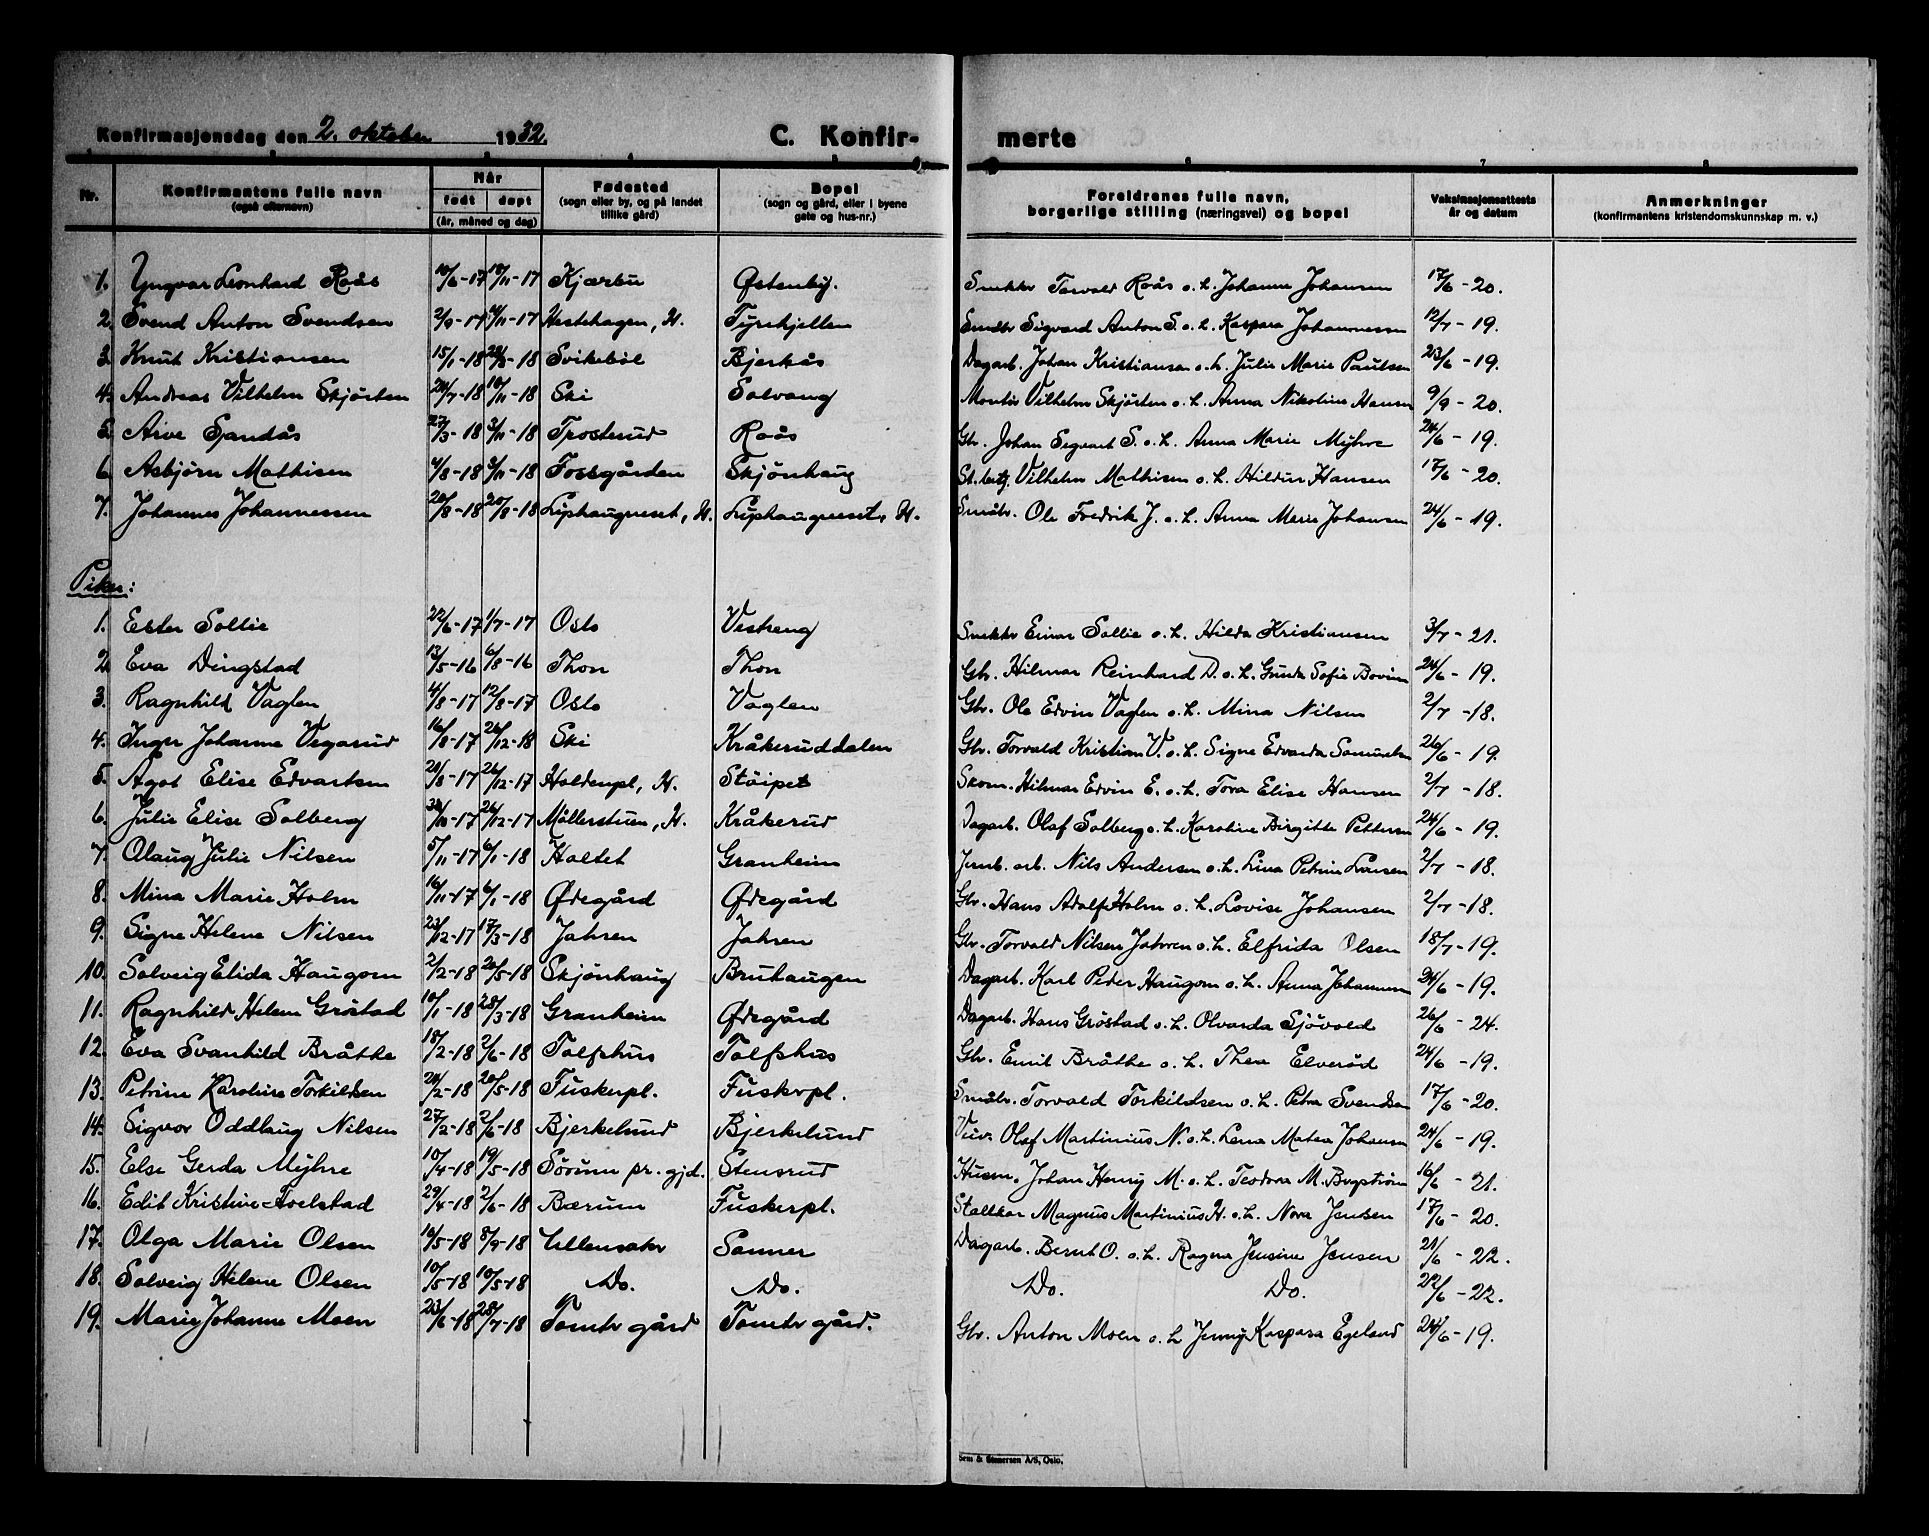 Konfirmasjonsdag den 2. oktober 1932. C. Konfir- merte
6 7 8
Nr. Konfirmantens fulle navn (også efternavn) Når født døpt (år, måned og dag) Fødested (sogn eller by, og på landet tillike gård) Bopel (sogn og gård, eller i byene gate og hus-nr.) Foreldrenes fulle navn, borgerlige stilling (næringsvei) og bopel Vaksinasjonsattests år og datum Anmerkninger (konfirmantens kristendomskunnskap m. v.)
1. Yngvar Leonhard Roås 10/6-17 18/11-17 Kjærbu Østenby. Snekker Torvald Roås o. h. Johanne Johansen 17/6 - 20.
2. Svend Anton Svendsen 2/9-17 11/11-17 Hestehagen, H. Tyrihjellen Småbr. Sigvard Anton S. o. h. Kaspara Johannessen 12/7 - 19.
3. Knut Kristiansen 15/1-18 -18 Svikebøl Bjerkås Dagarb. Johan Kristiansen o. h. Julie Marie Paulsen 23/6 - 19.
4. Andreas Vilhelm Skjørten 20/7-18 10/11-18 Ski Solvang Montør Vilhelm Skjørten o. h. Anna Nikoline Hansen 9/9 - 20.
5. Arve Sandås 27/3-18 3/11-18 Trosterud Roås Gbr. Johan Segvart S. o. h. Anna Marie Myhre 24/6 - 19.
6. Asbjørn Mathisen 4/8-18 3/11-18 Fossgården Skjønhaug St. betj. Vilhelm Mathisen o. h. Hildur Hansen 17/6 - 20.
7. Johannes Johannessen 20/8-18 20/8-18 Liphaugneset, H. Liphaugneset, H. Småbr. Ole Fredrik J. o. h. Anna Marie Johansen 24/6 - 19.
Piker:
1. Ester Sollie 22/6-17 1/7-17 Oslo Vestreng Snekker Einar Sollie o. h. Hilda Kristiansen 3/7 - 21.
2. Eva Dingstad 13/5-16 6/8-16 Thon Thon Gbr. Hilmar Reinhard D. o. h. Gunda Sofie Bovim 24/6 - 19.
3. Ragnhild Vaglen 4/8-17 12/8-17 Oslo Vaglen Gbr. Ole Edvin Vaglen o. h. Mina Nilsen 2/7 - 18.
4. Inger Johanne Vegarud 16/8-17 26/12-18 Ski Kråkeruddalen Gbr. Torvald Kristian V. o. h. Signe Edvarda Samuelsen 26/6 - 19.
5. Agot Elise Edvartsen 21/8-17 26/12-17 Holdenpl, H. Støipet Skom. Hilmar Edvin E. o. h. Tora Elise Hansen 2/7 - 18.
6. Julie Elise Solberg 30/10-17 26/12-17 Møllerstuen, H. Kråkerud Dagarb. Olaf Solberg o. h. Karoline Birgitte Pettersen 24/6 - 19.
7. Olaug Julie Nilsen 5/11-17 6/1-18 Holtet Granheim Jernb. arb. Nils Andersen o. h. Lina Petrine Larsen 2/7 - 18.
8. Mina Marie Holm 16/11-17 6/1-18 Ødegård Ødegård Gbr. Hans Adolf Holm o. h. Lovise Johansen 2/7 - 18.
9. Signe Helene Nilsen 23/12-17 17/3-18 Jahren Jahren Gbr. Torvald Nilsen Jahren o. h. Elfrida Olsen 18/7 - 19.
10. Solveig Elida Haugom 2/2-18 20/5-18 Skjønhaug Bruhaugen Dagarb. Karl Peder Haugom o. h. Anna Johannesen 24/6 - 19.
11. Ragnhild Helene Grøstad 10/1-18 28/3-18 Granheim Ødegård Dagarb. Hans Grøstad o. h. Olvarda Sjøvold 26/6 - 24.
12. Eva Svanhild Bråthe 18/2-18 2/6-18 Tolfshus Tolfshus Gbr. Emil Bråthe o. h. Thea Elverød 24/6 - 19.
13. Petrine Karoline Torkildsen 20/2-18 20/5-18 Fuskerpl. Fuskerpl. Småbr. Torvald Torkildsen o. h. Petra Svendsen 17/6 - 20.
14. Sigvor Oddlaug Nilsen 27/2-18 2/6-18 Bjerkelund Bjerkelund Olaf Martinius N. o. h. Lena Matea Johansen 24/6 - 19.
15. Else Gerda Myhre 10/4-18 19/5-18 Sørum pr. gjd. Stensrud Husm. Johan Henry M. o. h. Teodora M. Bergstrøm 16/6 - 21.
16. Edit Kristine Hvelstad 29/4-18 2/6-18 Bærum Fuskerpl. Stallkar Magnus Martinius H. o. h. Nora Jensen 17/6 - 20.
17. Olga Marie Olsen 10/5-18 8/9-18 Ullensaker Sanner Dagarb. Bernt O. o. h. Ragna Jensine Jensen 21/6 - 22.
18. Solveig Helene Olsen 10/5-18 10/5-18 Do. Do. Do. Do. 22/6 - 22.
19. Marie Johanne Moen 23/6-18 28/7-18 Tomter gård Tomter gård. Gbr. Anton Moen o. h. Jenny Kaspara Egeland 24/6 - 19.
Sem & Stenersen A/S, Oslo.